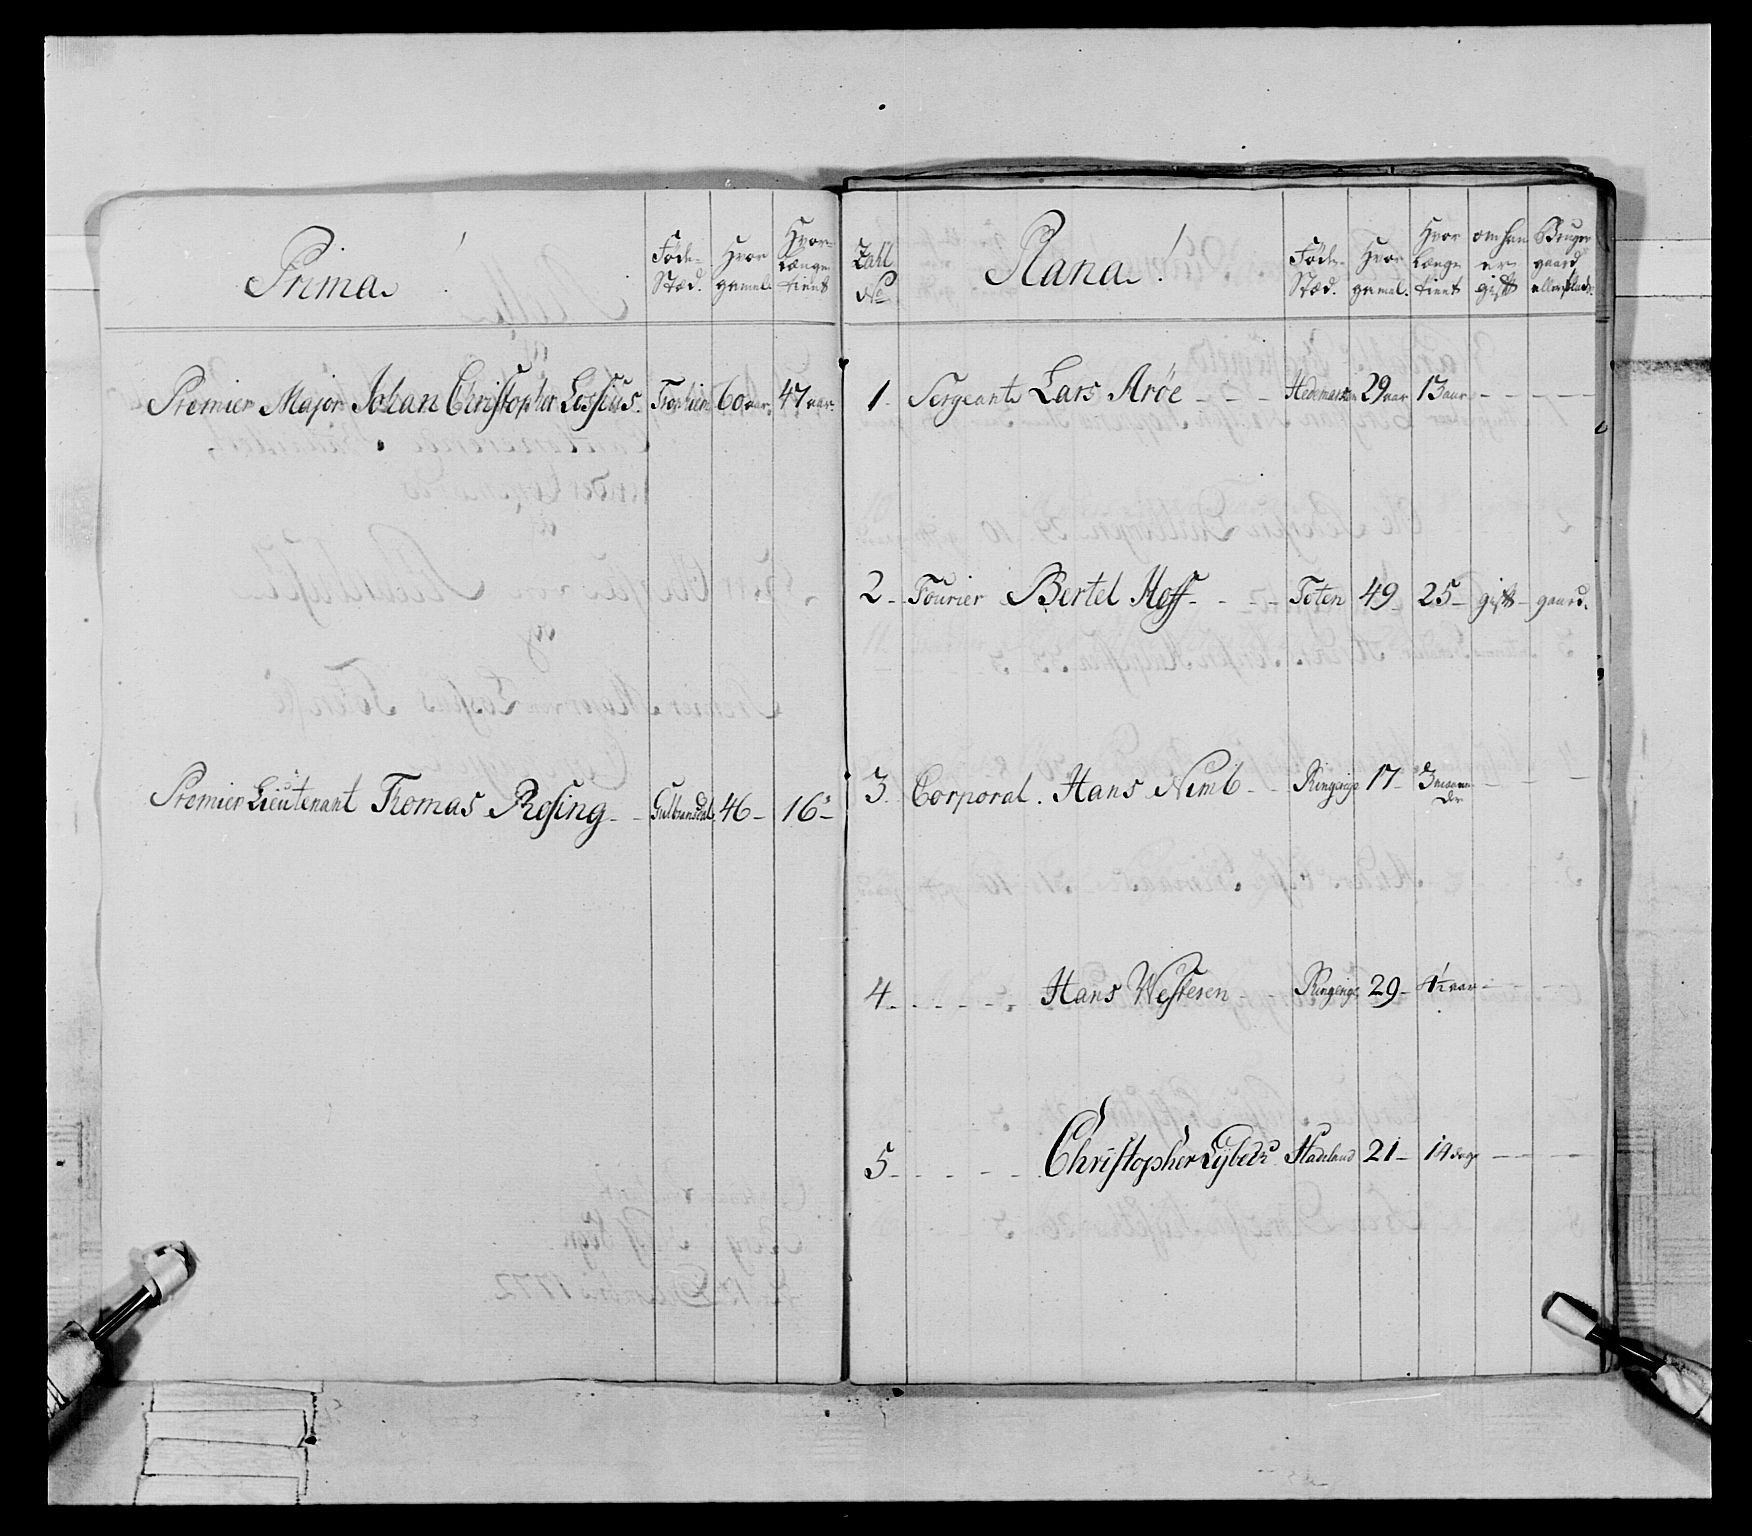 Prima. Føde- Stæd. Hvor gamel. Hvor- Længe tient
Premier Major Johan Christopher Lossius. Tronhiem 60 aar. 47 aar.
Premier Lieutenant Thomas Rosing - - Gulbransdal. 46 - 16 -
Zahl No Plana. Føde- Stæd. Hvor gamel. Hvor Længe tient om han er gift Bruger gaard eller Plads.
1. Sergeant Lars Arøe - - - Hedemarken 29 aar 13 aar - - - - -
2 - Fourier Bertel Hoff - - - - Toten 49 - 25 - gift - gaard.
3. Corporal. Hans Nimb - - Ringerige 17 - 3 maane- der - - -
4 - - - - - . Hans Westeren - - Ringerige 29 - 1½ aar - - -
5 - - - - - Christopher Lybeck Hadeland 21 - 14 dage - - - -